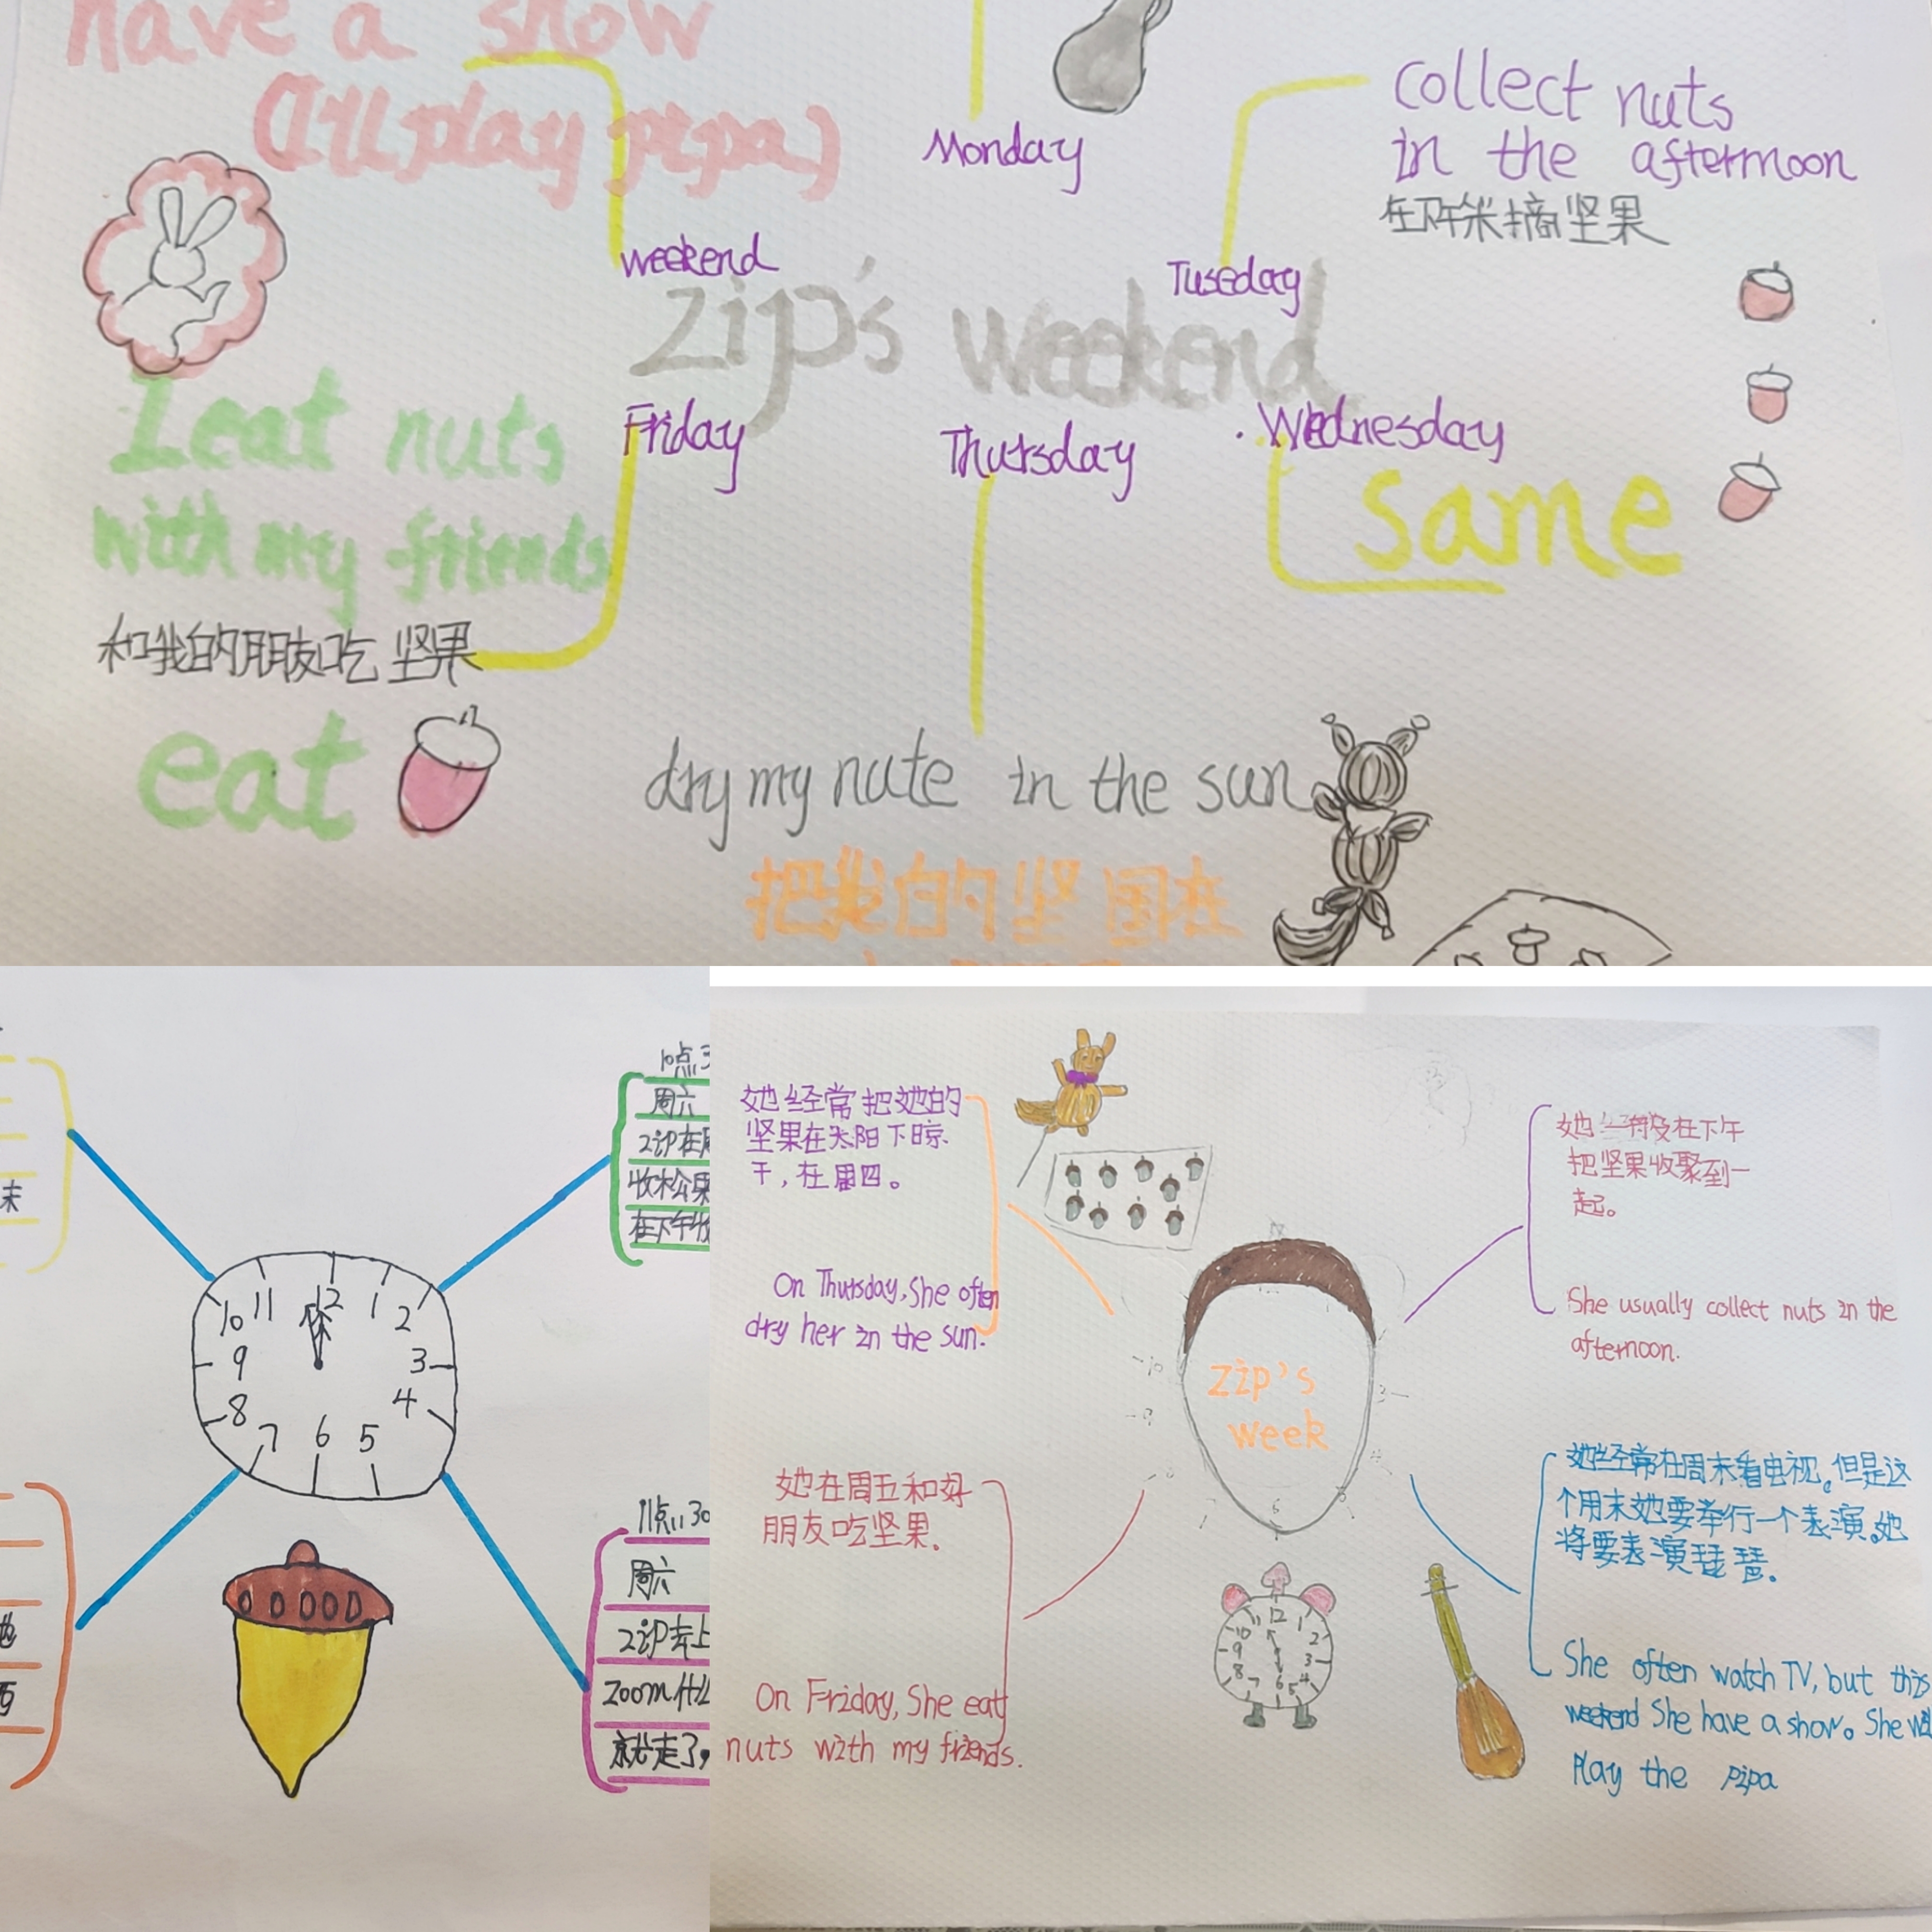 have a show
(I'll play pipa)
Monday
collect nuts
in the afternoon
在下午采摘坚果
weekend
Tuseday
zip's weekend
I eat nuts
with my friends
和我的朋友吃坚果
eat
Friday
Thursday
Wednesday
same
dry my nute in the sun
把我的坚国在
末
10点3
周六
zip在周
收松果
在下午收
10 11 12 1 2
9 3
8 7 6 5 4
11点30
周六
zip去上
zoom什么
就走了,
她经常把她的
坚果在太阳下晾
干,在周四。
On Thursday, She often
dry her in the sun.
她在周五和好
朋友吃坚果.
On Friday, She eat
nuts with my friends.
zip's
week
11 12 1
10 2
9 3
8 4
7 6 5
在下午
把坚果收聚到一
起。
She usually collect nuts in the
afternoon.
她经常在周末看电视。但是这
个周末她要举行一个表演。她
将要表演琵琶.
She often watch TV, but this
weekend She have a show。She
Play the pipa